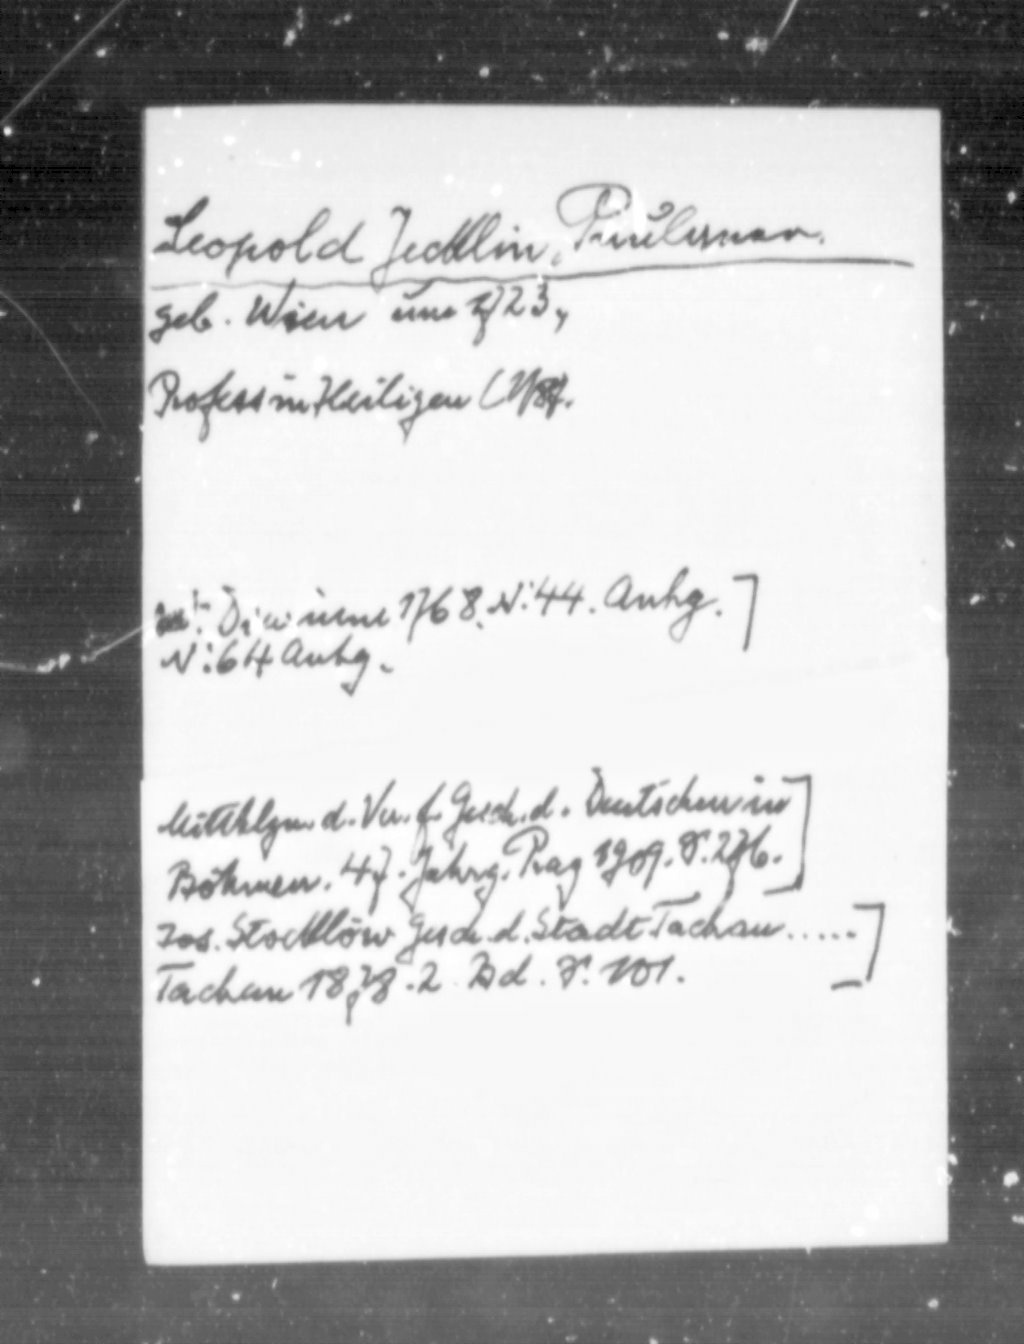 Leopold Jecklin, Paulaner.
geb. Wien um 1723,
Profess in Heiligen
Diarium 1768. N: 44. Anhg.]
N: 64 Anhg.
Mittlgn. d. Ver. f. Gesch. d. Deutschen in
Böhmen. 47. Jahrg. Prag 1909. S. 276.]
Jos. Stocklöw Gesch. d. Stadt Tachau.....
Tachau 1878. 2. Bd. S. 101.]